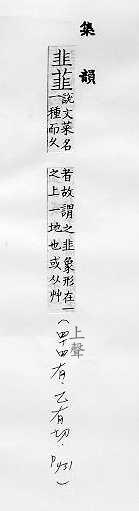 集韻
韭韮
說文菜名
一種而久
者故謂之韭象形在一
之上一地也或从艸
(上聲 四十四有·乙有切. P431)